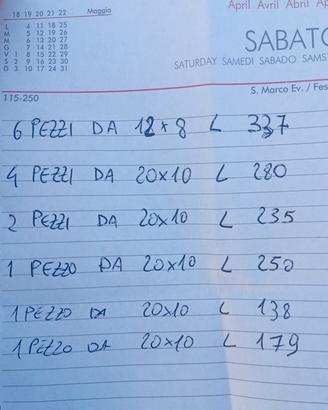 18 19 20 21 22 Maggio
L 4 11 18 25
M 5 12 19 26
M 6 13 20 27
G 7 14 21 28
V 1 8 15 22 29
S 2 9 16 23 30
D 3 10 17 24 31
April Avril Abril Ap
SABATO
SATURDAY SAMEDI SABADO SAMS
115-250
S. Marco Ev. / Fes
6 PEZZI DA 12x8 L 337
4 PEZZI DA 20x10 L 280
2 PEZZI DA 20x10 L 235
1 PEZZO DA 20x10 L 250
1 PEZZO DA 20x10 L 138
1 PEZZO DA 20x10 L 179